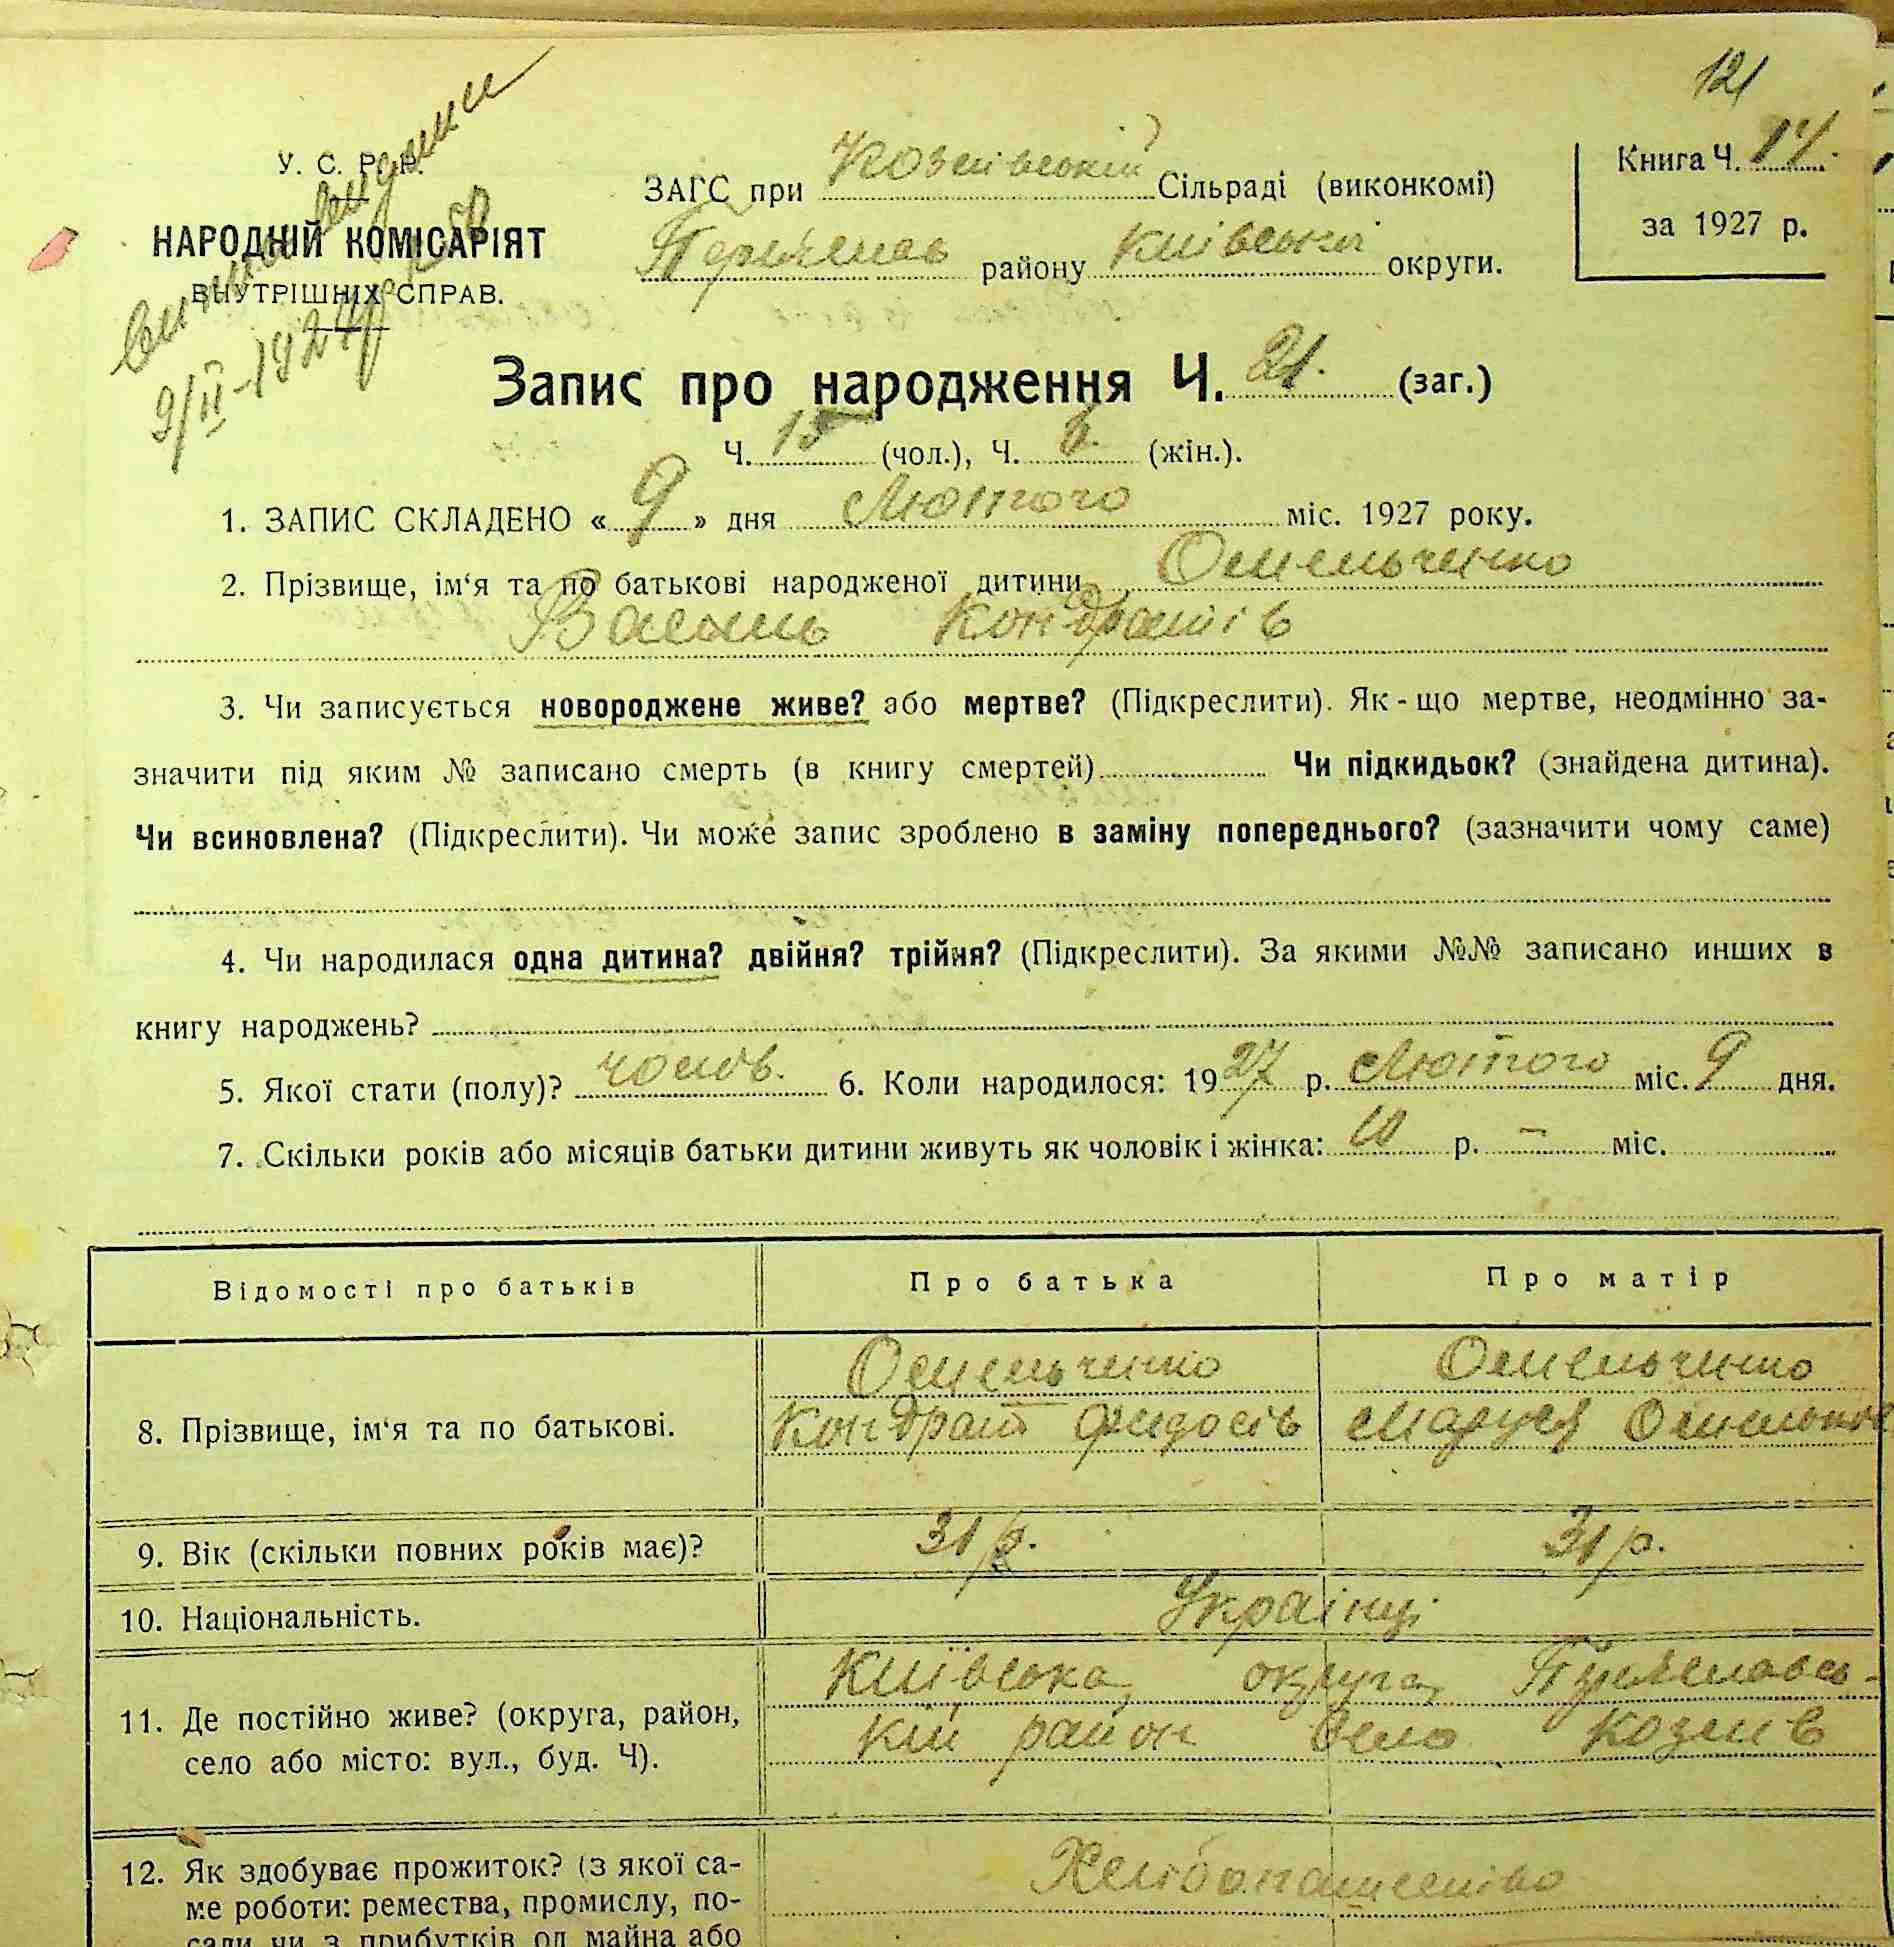 121
У. С. Р. Р.
НАРОДНІЙ КОМІСАРІЯТ
ВНУТРІШНІХ СПРАВ.
9/II-1927 р.
ЗАГС при Козлівській Сільраді (виконкомі)
району Київської округи.
Книга Ч. 14.
за 1927 р.
Запис про народження Ч. 21. (заг.)
Ч. 15 (чол.), Ч. 6. (жін.).
1. ЗАПИС СКЛАДЕНО « 9 » дня Лютого міс. 1927 року.
2. Прізвище, ім‘я та по батькові народженої дитини Омельченко
Василь Кондратів
3. Чи записується новороджене живе? або мертве? (Підкреслити). Як-що мертве, неодмінно за-
значити під яким № записано смерть (в книгу смертей) Чи підкидьок? (знайдена дитина).
Чи всиновлена? (Підкреслити). Чи може запис зроблено в заміну попереднього? (зазначити чому саме)
4. Чи народилася одна дитина? двійня? трійня? (Підкреслити). За якими №№ записано инших в
книгу народжень?
5. Якої стати (полу)? чолов. 6. Коли народилося: 1927 р. Лютого міс. 9 дня.
7. Скільки років або місяців батьки дитини живуть як чоловік і жінка: 10 р. – міс.
Відомості про батьків Про батька Про матір
Омельченко Омельченко
8. Прізвище, ім‘я та по батькові. Кондрат Федосів Маруся
9. Вік (скільки повних років має)? 31 р. 31 р.
10. Національність. Українці
Київська округа
11. Де постійно живе? (округа, район, кий район село Козлив
село або місто: вул., буд. Ч).
12. Як здобуває прожиток? (з якої са- Хлібопашество
ме роботи: ремества, промислу, по-
сади чи з прибутків од майна або